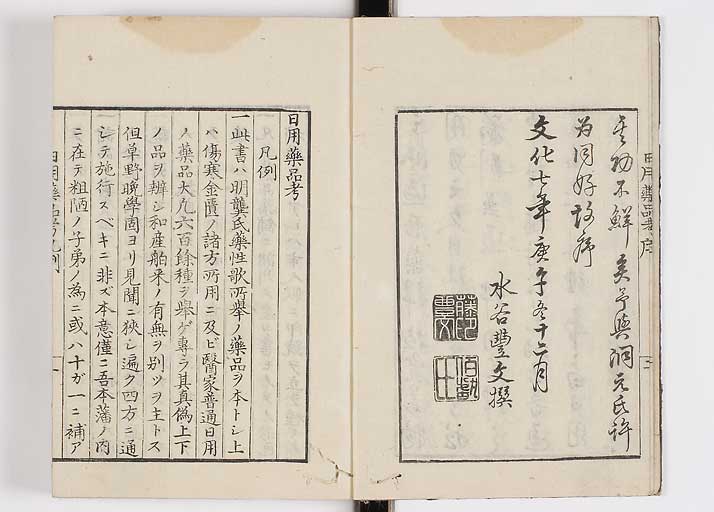 其功不鮮矣予與洞元氏許
為同好故序
文化七年庚午冬十二月
水谷豐文撰
日用藥品考序
日用藥品考
凡例
一此書ハ明龔氏藥性歌所擧ノ藥品ヲ本トシ上
ハ傷寒金匱ノ諸方所用ニ及ビ醫家普通日用
ノ藥品大凡六百餘種ヲ擧ゲ專ラ其真偽上下
ノ品ヲ辨シ和産舶來ノ有無ヲ別ツヲ主トス
但草野晩學固ヨリ見聞ニ狹シ遍ク四方ニ通
シテ施術スベキニ非ズ本意僅ニ吾本藩ノ内
ニ在テ粗陋ノ子弟ノ為ニ或ハ十ガ一ニ補ア
日用藥品考凡例